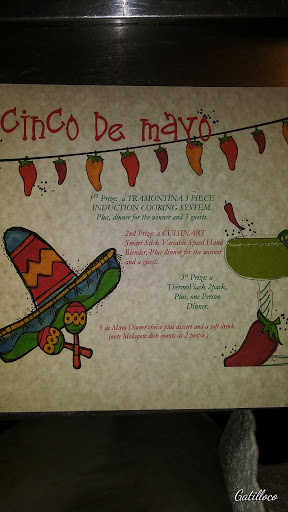 cinco De mayo
1ST Prize: a TRAMONTINA 3 PIECE
INDUCTION COOKING SYSTEM,
Plus, dinner for the winner and 3 guests.
2nd Prize: a CUISINART
Smart Stick Variable Speed Hand
Blender, Plus dinner for the winner
and a guest.
3rd Prize: a
ThermoFlask 2pack,
Plus, one Person
Dinner.
5 de Mayo Dinner choice plus dessert and a soft drink.
(note Molcajete dish counts as 2 people.)
Gatilloco